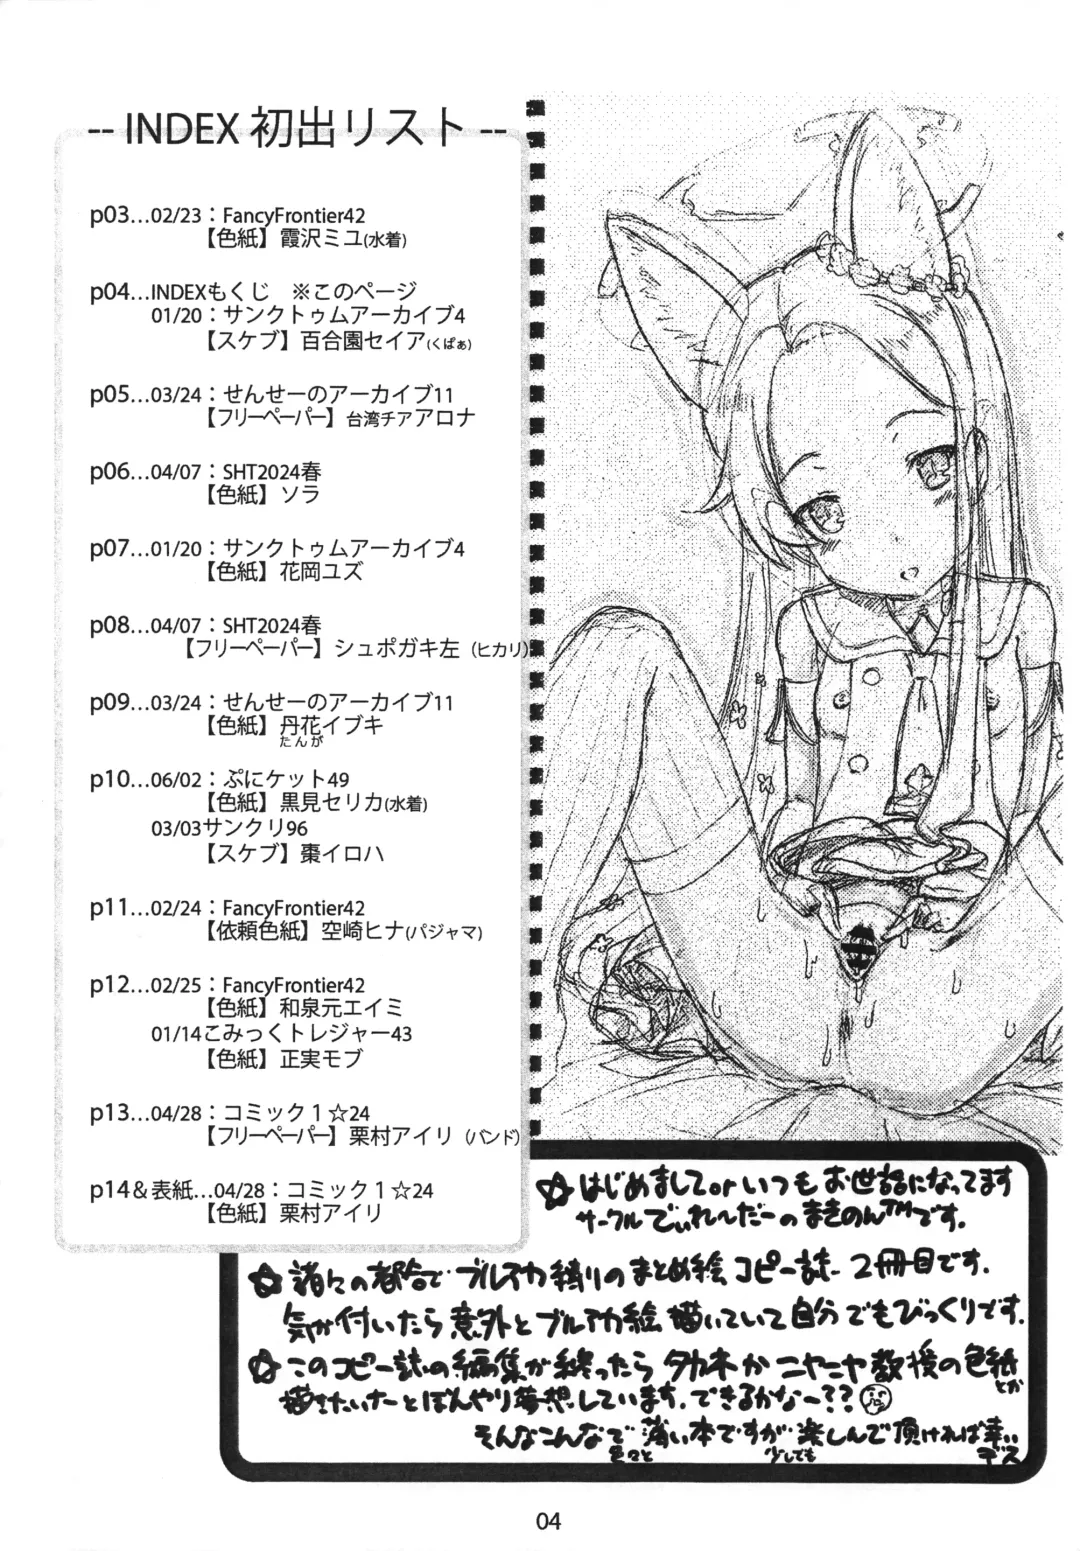 -- INDEX 初出リスト --
p03…02/23：FancyFrontier42
【色紙】霞沢ミユ(水着)
p04…INDEXもくじ　※このページ
01/20：サンクトゥムアーカイブ4
【スケブ】百合園セイア
p05…03/24：せんせーのアーカイブ11
【フリーペーパー】台湾チアアロナ
p06…04/07：SHT2024春
【色紙】ソラ
p07…01/20：サンクトゥムアーカイブ4
【色紙】花岡ユズ
p08…04/07：SHT2024春
【フリーペーパー】シュポガキ左（ヒカリ）
p09…03/24：せんせーのアーカイブ11
【色紙】丹花イブキ
たんが
p10…06/02：ぷにケット49
【色紙】黒見セリカ(水着)
03/03サンクリ96
【スケブ】棗イロハ
p11…02/24：FancyFrontier42
【依頼色紙】空崎ヒナ(パジャマ)
p12…02/25：FancyFrontier42
【色紙】和泉元エイミ
01/14こみっくトレジャー43
【色紙】正実モブ
p13…04/28：コミック1☆24
【フリーペーパー】栗村アイリ（バンド）
p14＆表紙…04/28：コミック1☆24
【色紙】栗村アイリ
☆はじめましてorいつもお世話になってます
サークルでぃれ〜だーのまきのん™です。
☆諸々の都合でブルアカ縛りのまとめ絵コピー誌 2冊目です。
気が付いたら意外とブルアカ絵描いていて自分でもびっくりです。
☆このコピー誌の編集が終ったらタカネかニヤニヤ教授の色紙
とか
描きたいなーとぼんやり夢想しています。できるかなー??
そんなこんなで薄い本ですが楽しんで頂ければ幸い
色々と 少しでも デス
04